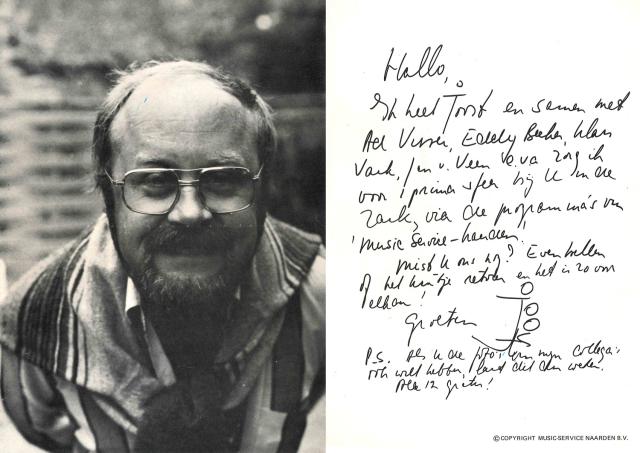 Hallo,
Ik heet Joost en samen met
Ad Visser, Eddy Becker, Klaas
Vaak, Jan v. Veen e.v.a. zorg ik
voor 'n prima sfeer bij U in de
zaak, via de programma's van
'Music Service-Naarden'.
Mist U ons nog? Even bellen
of het kaartje retour en het is zo voor
elkaar!
Groeten
P.S. Als U de foto's van mijn collega's
ook wilt hebben, laat dit dan weten.
Alle 12 gratis!
© COPYRIGHT MUSIC-SERVICE NAARDEN B.V.